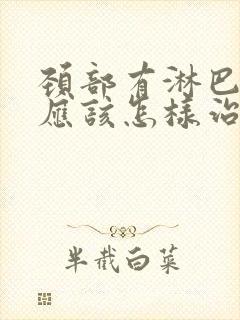 颈部有淋巴
应该怎样治
半截白菜